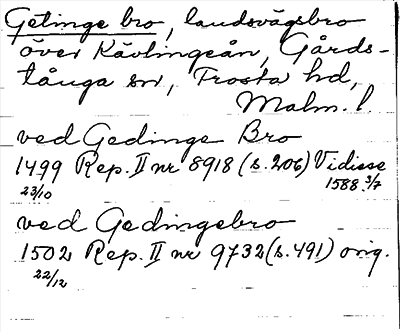 Getinge bro, landsvägsbro
över Kävlingeån, Gårds-
tånga sn, Frosta hd,
Malm. l.
ved Gedinge Bro
1499 Rep. II nr 8918 (s. 206) Vidisse
23/10 1588 3/7
ved Gedingebro
1502 Rep. II nr 9732 (s. 491) orig.
22/12